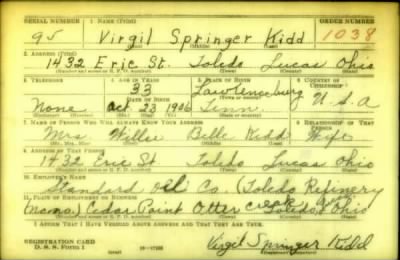 SERIAL NUMBER 1. NAME (Print) ORDER NUMBER
95 Virgil Springer Kidd 1038
2. ADDRESS (Print)
1432 Eric St. Toledo Lucas Ohio
3. TELEPHONE 4. AGE IN YEARS 5. PLACE OF BIRTH 6. COUNTRY OF CITIZENSHIP
33 Lawrenceburg
DATE OF BIRTH
None Oct 23 1906 Tenn. U.S.A
7. NAME OF PERSON WHO WILL ALWAYS KNOW YOUR ADDRESS 8. RELATIONSHIP OF THAT PERSON
Mrs Willie Belle Kidd Wife
9. ADDRESS OF THAT PERSON
1432 Eric St Toledo Lucas Ohio
10. EMPLOYER'S NAME
Standard Oil Co. (Toledo Refinery
11. PLACE OF EMPLOYMENT OR BUSINESS
Cedar Point Otter Creek Toledo, Ohio
I AFFIRM THAT I HAVE VERIFIED ABOVE ANSWERS AND THAT THEY ARE TRUE.
REGISTRATION CARD
D. S. S. Form 1 Virgil Springer Kidd